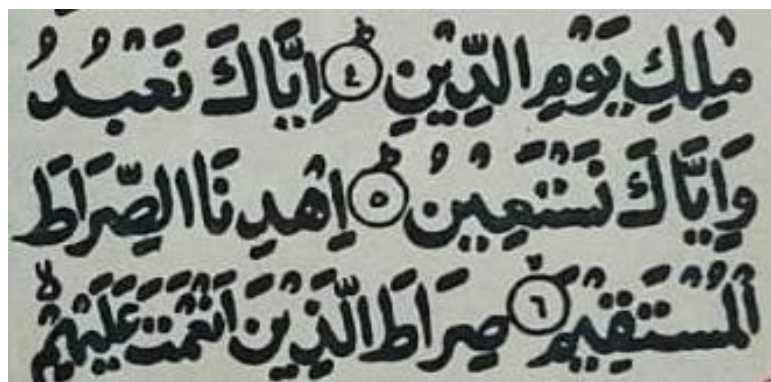 مٰلِكِ يَوْمِ الدِّيْنِ ؕ﴿٤﴾ اِيَّاكَ نَعْبُدُ
وَاِيَّاكَ نَسْتَعِيْنُ ؕ﴿٥﴾ اِهْدِنَا الصِّرَاطَ
الْمُسْتَقِيْمَ ۙ﴿٦﴾ صِرَاطَ الَّذِيْنَ اَنْعَمْتَ عَلَيْهِمْ ۙ